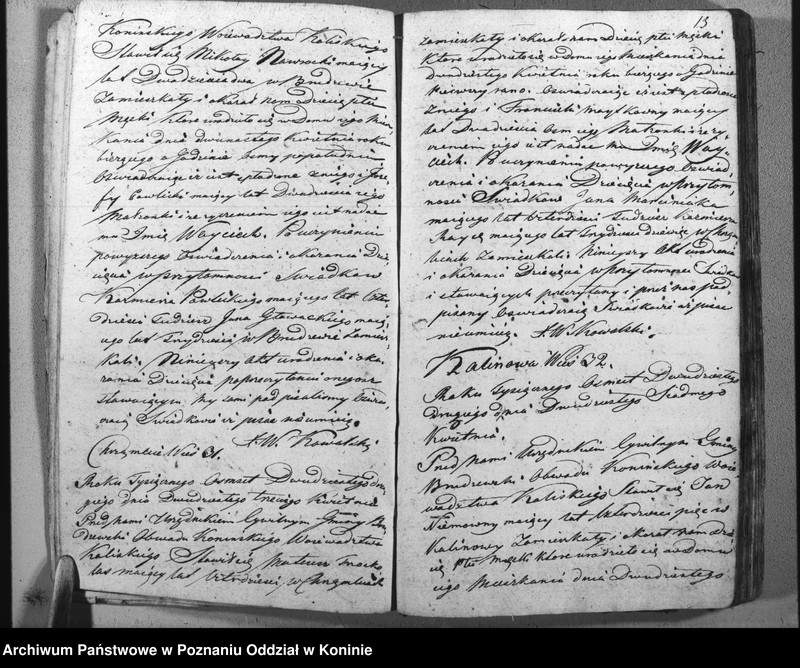 Konińskiego Woiewództwa Kaliskiego
Stawił się Mikołay Nawrocki maiący
lat Dwadzieścia dwa, w Brudzewie
Zamieszkały i okazał nam Dziecię płci
Męzki które urodziło się w Domu iego Miesz-
kania dnia dwunastego Kwietnia roku
bieżącego o Godzinie ósmy popołudniu
Oświadczaiąc iż iest spłodzone z niego i Józe-
fy Pawlicki maiący lat Dwadzieścia iego
Małżonki i że życzeniem iego iest nadać
mu Imię Woyciech. Po uczynieniu
powyższego Oświadczenia i okazaniu Dzie-
cięcia w przytomności Świadków
Kaźmierza Pawlickiego maiącego lat Czter-
dzieści tudzież Jana Głowackiego maią-
cego lat Trzydzieści w Brudzewie Zamiesz-
kali. Niniejszy Akt urodzenia i oka-
zania Dziecięcia po przeczytaniu onego
Stawaiącym, My sami podpisaliśmy Oświa-
czaią Świadkowie iż pisać nieumieią.
X. W. Kowalski
Wieś 31.
Roku Tysiącznego Osmset Dwudziestego dru-
giego dnia Dwudziestego trzeciego Kwietnia
Przed Nami Urzędnikiem Cywilnym Gminy Bru-
dzewski Obwodu Konińskiego Woiewództwa
Kaliskiego Stawił się Mateusz
maiący lat Czterdzieści, w
13
Zamieszkały i okazał nam Dziecię płci Męzki
które urodziło się w domu iego Mieszkania dnia
Dwudziestego Kwietnia roku bieżącego o Godzinie
pierwszy rano. Oświadczaiąc iż iest spłodzone
z niego i Franciszki maiący
lat Dwadzieścia ośm iego Małżonki i że ży-
czeniem iego iest nadać mu Imię Woy-
ciech. Po uczynieniu powyższego Oświad-
czenia i okazaniu Dziecięcia w przytom-
ności Świadków Jana Marciniaka
maiącego lat Czterdzieści tudzież Kaźmierza
maiącego lat Trzydzieści dziewięć w
Zamieszkali. Niniejszy Akt urodzenia
i okazania Dziecięcia w przytomności Świadków
i stawaiących przeczytany i przez nas pod-
pisany Oświadczaią Świadkowie iż pisać
nieumieią. X. W. Kowalski.
Kalinowa Wieś 32.
Roku Tysiącznego Osmset Dwudziestego
Drugiego dnia Dwudziestego Siódmego
Kwietnia.
Przed Nami Urzędnikiem Cywilnym Gminy
Brudzewski Obwodu Konińskiego Woie-
wództwa Kaliskiego Stawił się Jan
maiący lat Czterdzieści pięć w
Kalinowy Zamieszkały i okazał nam Dzie-
cię płci Męzki które urodziło się w domu
iego Mieszkania dnia Dwudziestego
Archiwum Państwowe w Poznaniu Oddział w Koninie